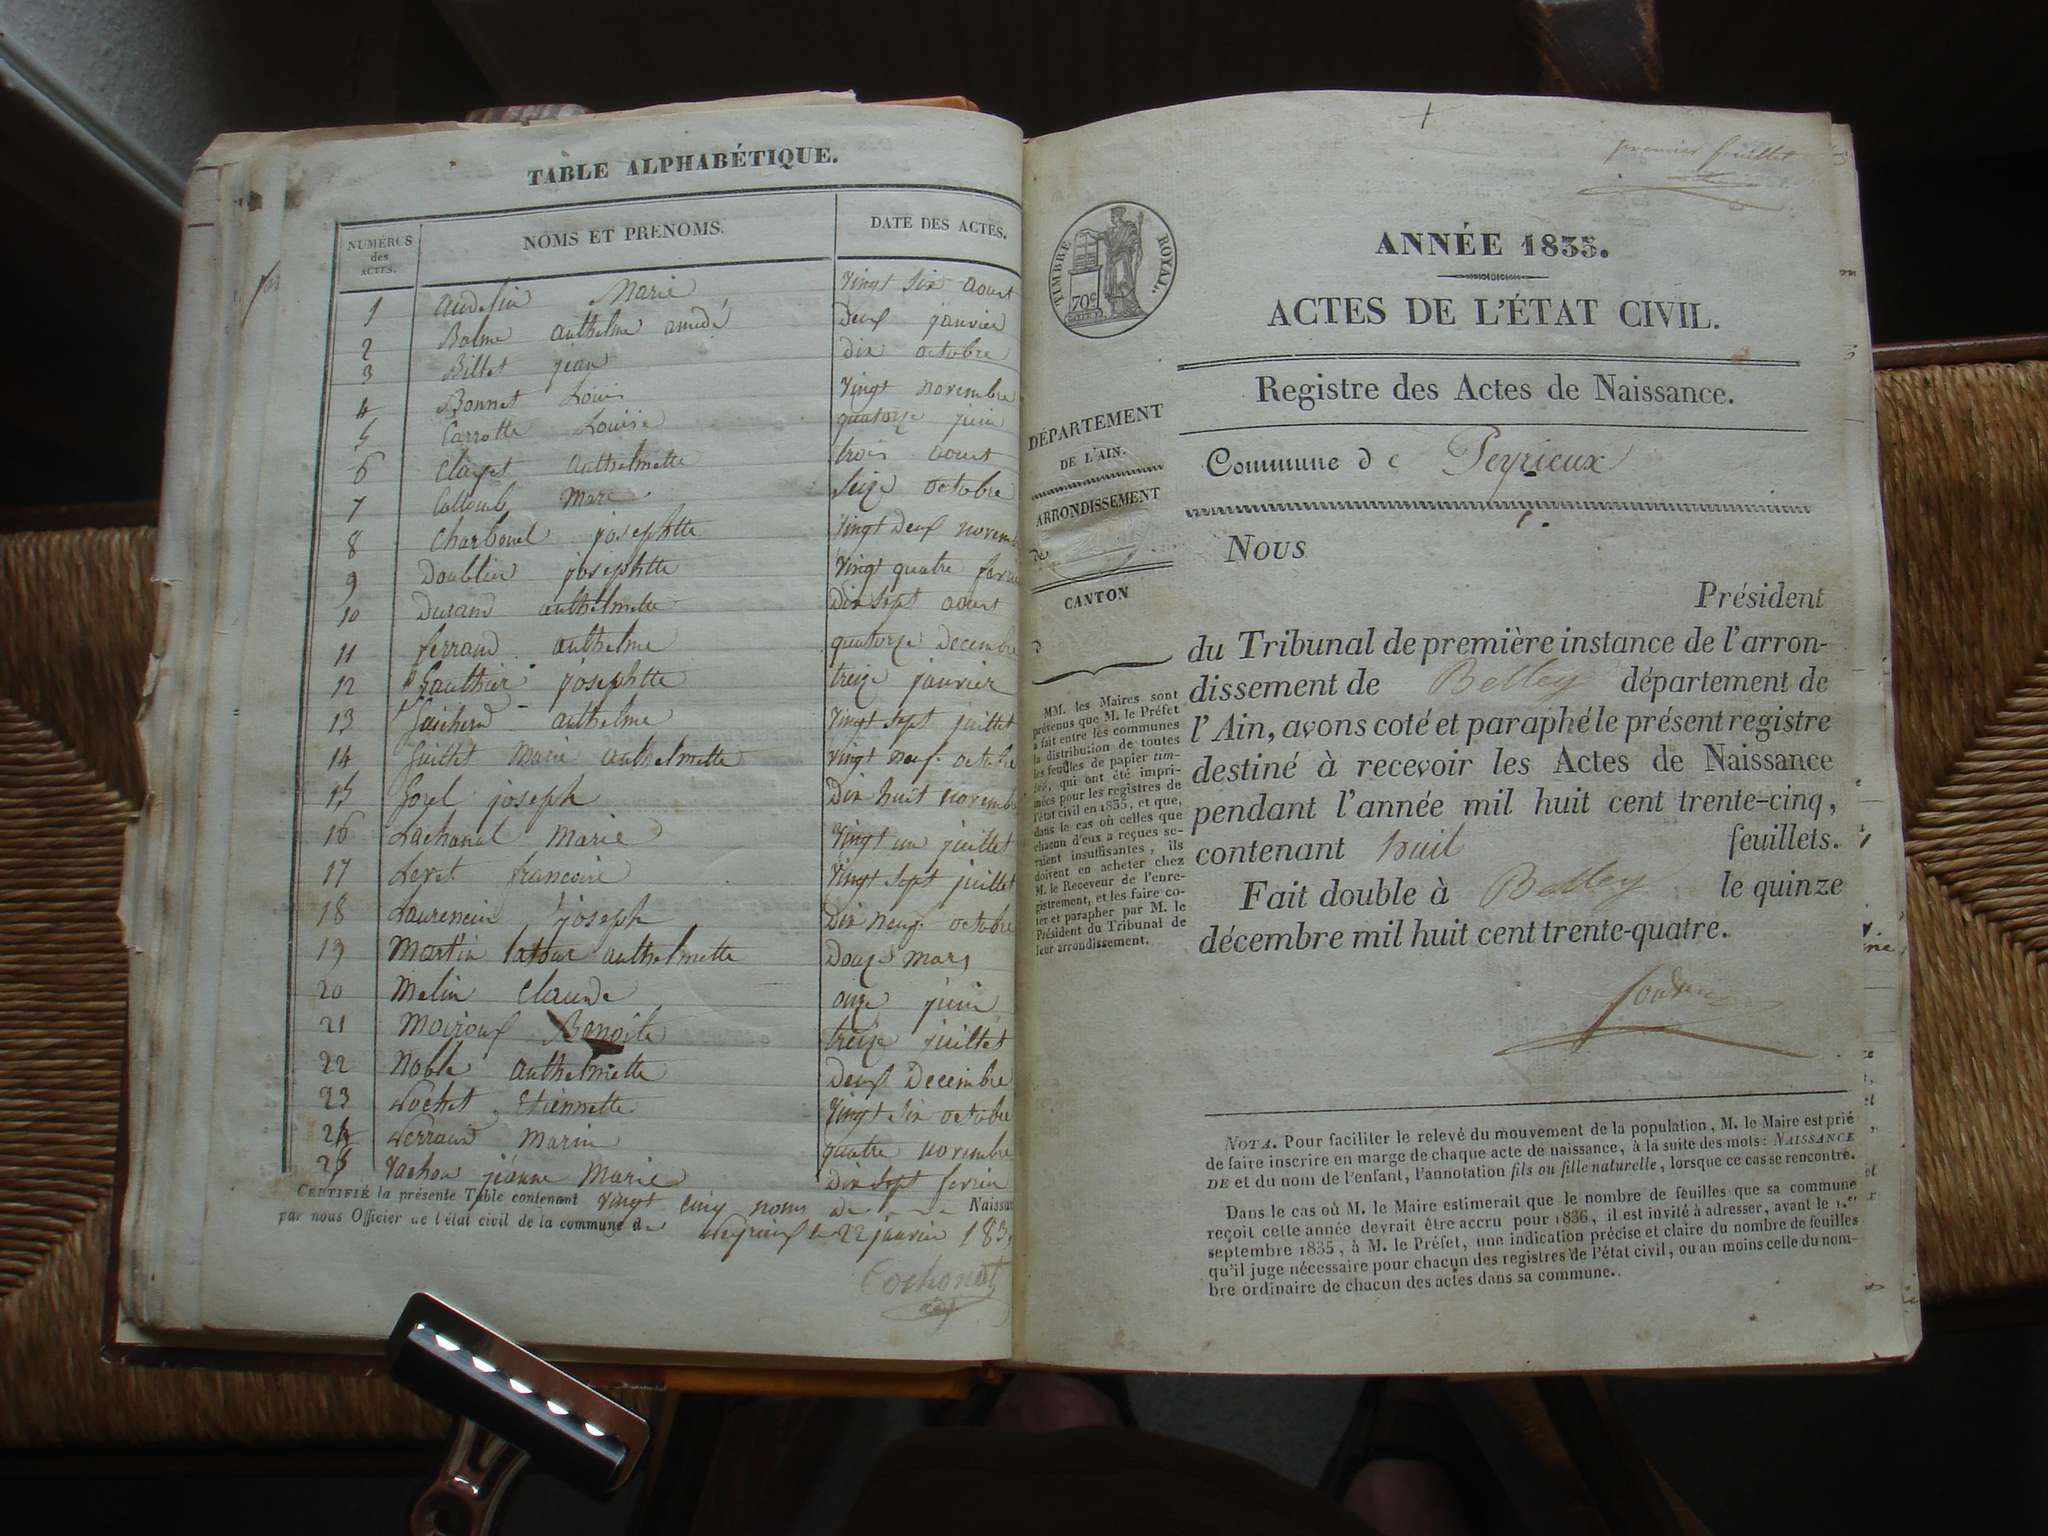 TABLE ALPHABÉTIQUE.
NUMÉROS des ACTES.
NOMS ET PRENOMS.
DATE DES ACTES.
1 Marie vingt six aout
2 Balme anthelme amedé deux janvier
3 Billet jean dix octobre
4 Bonnet Louis vingt novembre
5 Carrotte Louise quatorze juin
6 Clayet anthelmette trois aout
7 seize octobre
8 Charbonel josephtte vingt deux
9 Doublier josephtte vingt quatre
10 Durand anthelmette dix sept aout
11 ferrand anthelme quatorze
12 gauthier josephtte treize janvier
13 anthelme vingt sept juillet
14 Marie anthelmette vingt neuf octobre
15 joseph dix huit
16 Marie vingt un juillet
17 vingt sept juillet
18 Laurencin joseph dix neuf octobre
19 Martin latour anthelmette Douze mars
20 Melin Claude onze juin
21 Benoite treize juillet
22 Noble anthelmette deux Decembre
23 Etiennette vingt six octobre
24 quatre novembre
25 Vachon jeanne Marie dix sept
CERTIFIÉ la présente Table contenant vingt cinq noms de Naissan
par nous Officier de l'état civil de la commune de Peyrieux le 22 janvier 183
Cochonat
premier feuillet
TIMBRE ROYAL.
70c
ANNÉE 1835.
ACTES DE L'ÉTAT CIVIL.
Registre des Actes de Naissance.
Commune de Peyrieux
DÉPARTEMENT
DE L'AIN.
ARRONDISSEMENT
de
CANTON
d
MM. les Maires sont
prévenus que M. le Préfet
a fait entre les communes
la distribution de toutes
les feuilles de papier tim-
bré, qui ont été impri-
mées pour les registres de
l'état civil en 1835, et que,
dans le cas où celles que
chacun d'eux a reçues se-
raient insuffisantes, ils
doivent en acheter chez
M. le Receveur de l'enre-
gistrement, et les faire co-
ter et parapher par M. le
Président du Tribunal de
leur arrondissement.
Nous
Président
du Tribunal de première instance de l'arron-
dissement de Belley département de
l'Ain, avons coté et paraphé le présent registre
destiné à recevoir les Actes de Naissance
pendant l'année mil huit cent trente-cinq,
contenant huit feuillets.
Fait double à Belley le quinze
décembre mil huit cent trente-quatre.
NOTA. Pour faciliter le relevé du mouvement de la population, M. le Maire est prié
de faire inscrire en marge de chaque acte de naissance, à la suite des mots: NAISSANCE
DE et du nom de l'enfant, l'annotation fils ou fille naturelle, lorsque ce cas se rencontre.
Dans le cas où M. le Maire estimerait que le nombre de feuilles que sa commune
reçoit cette année devrait être accru pour 1836, il est invité à adresser, avant le 1.er
septembre 1835, à M. le Préfet, une indication précise et claire du nombre de feuilles
qu'il juge nécessaire pour chacun des registres de l'état civil, ou au moins celle du nom-
bre ordinaire de chacun des actes dans sa commune.